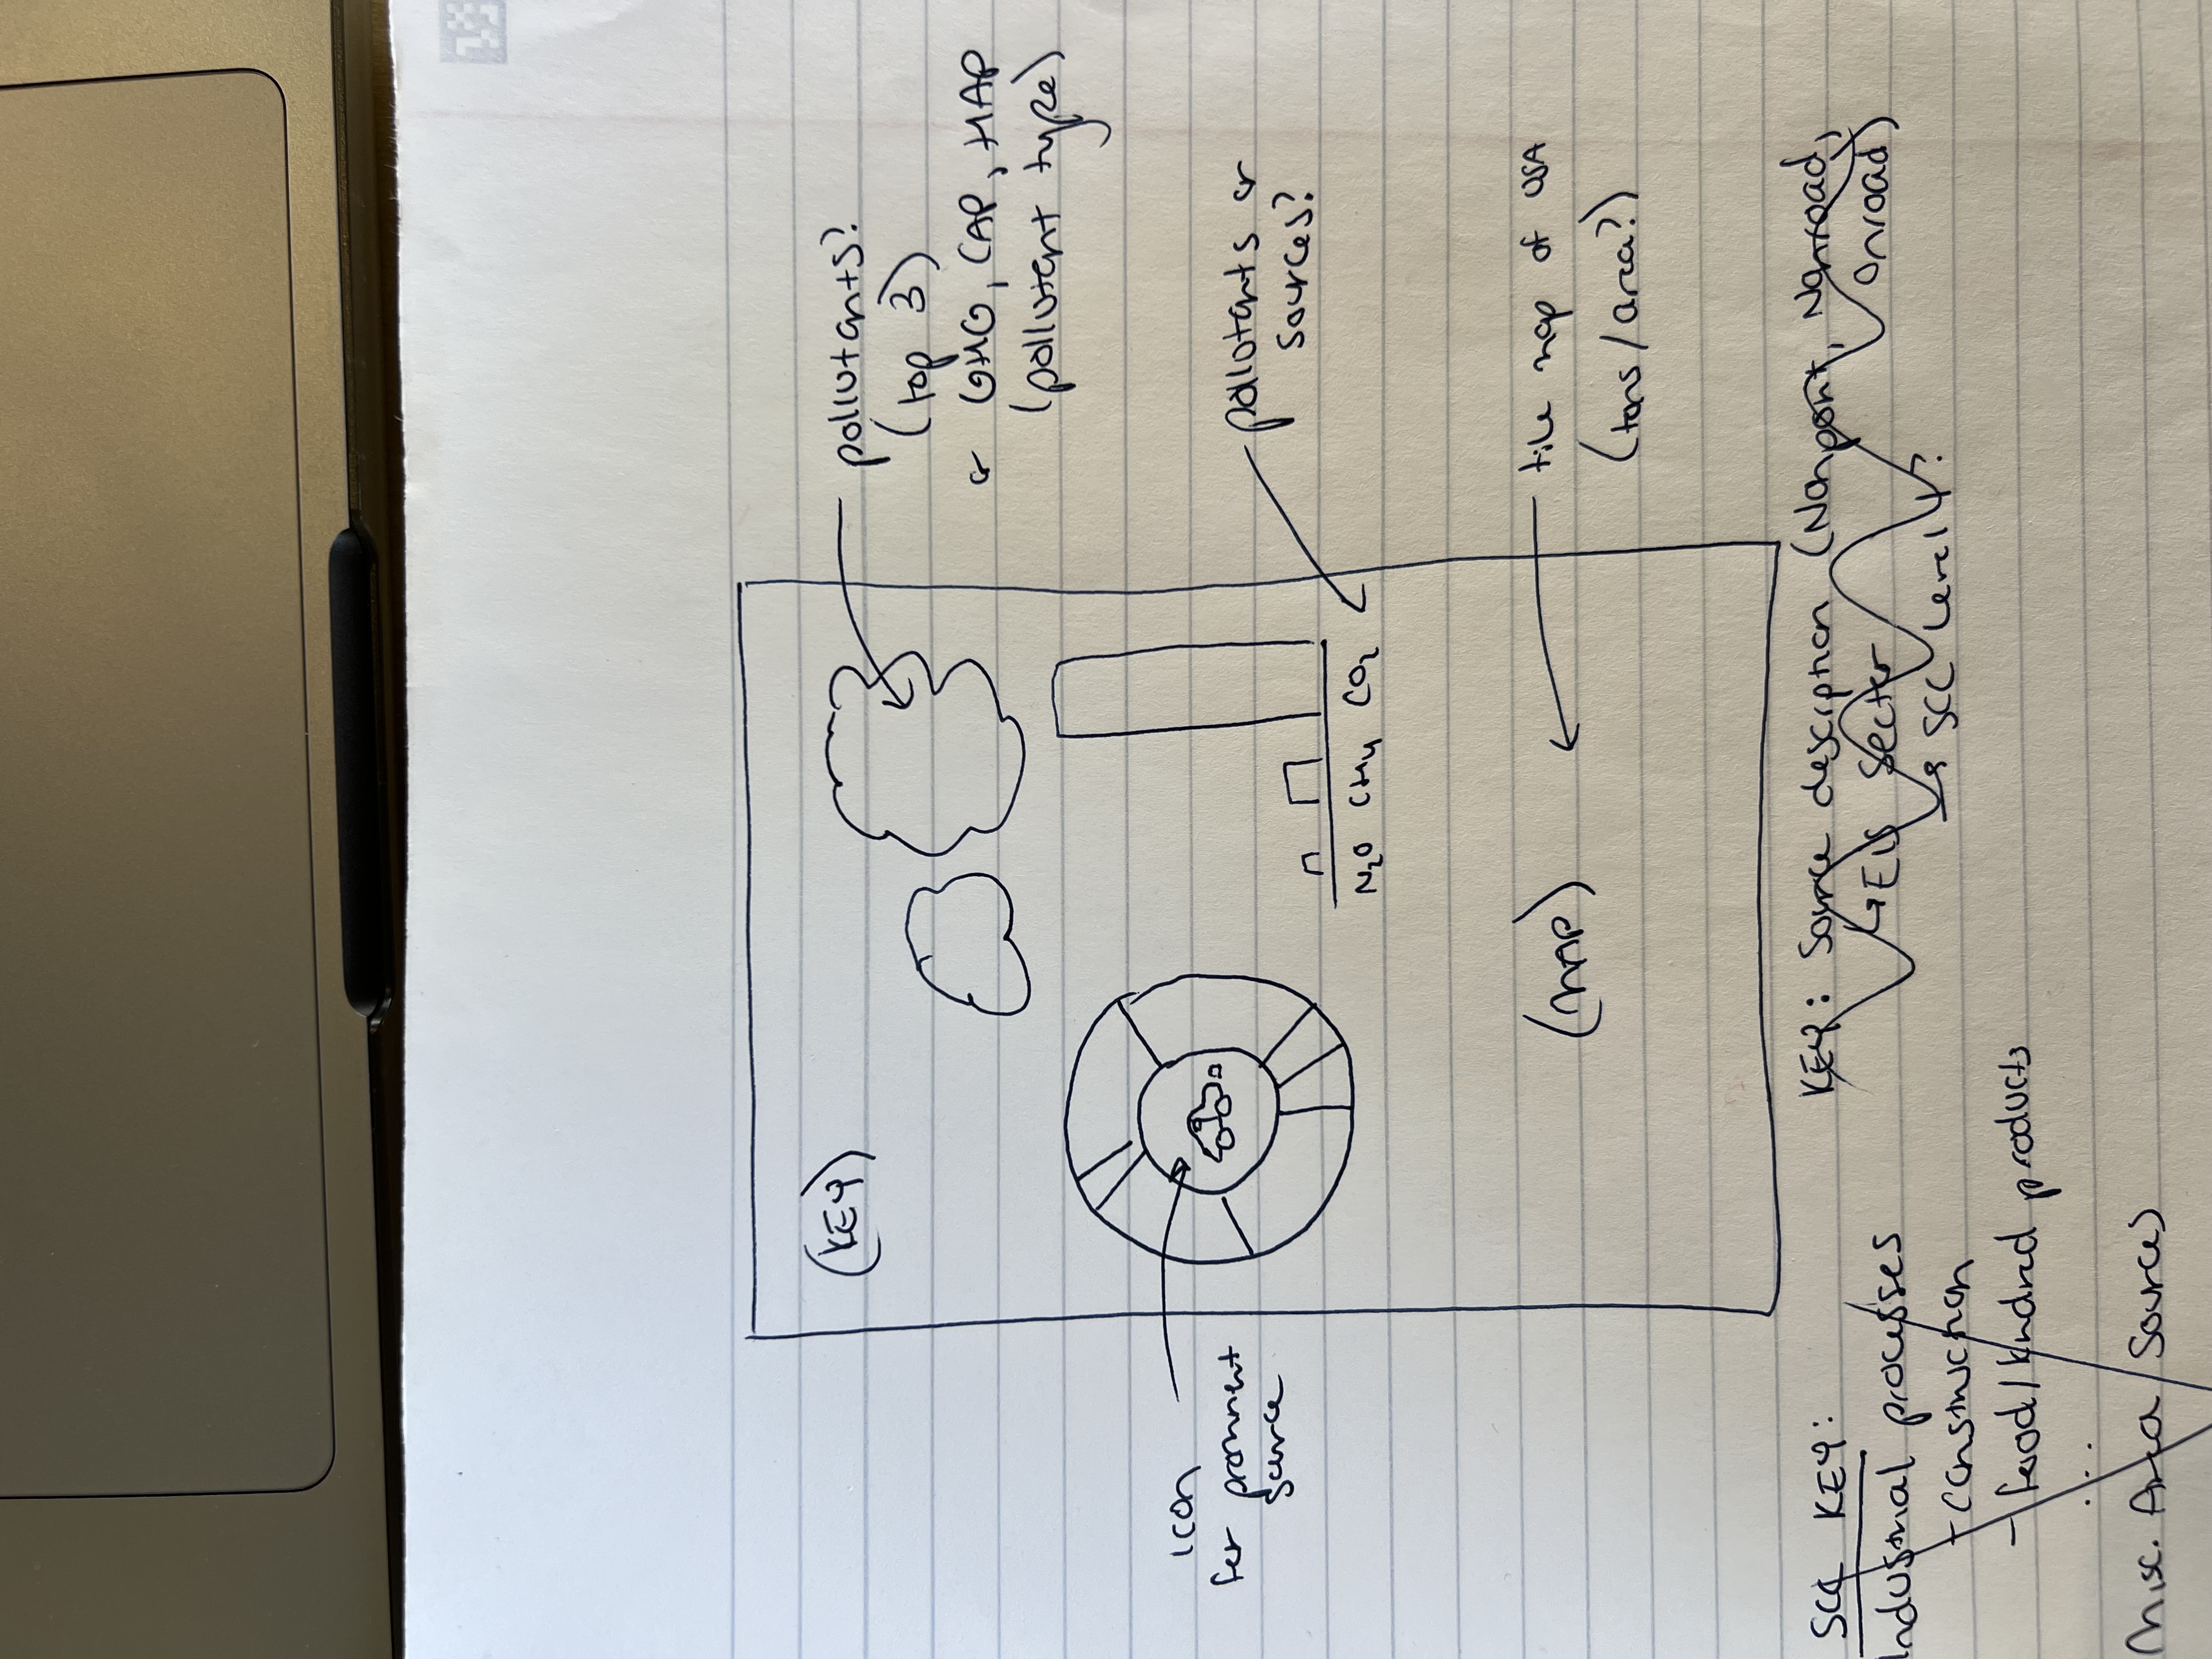 (KEY)
pollutants?
(top 3)
or GHG, CAP, HAP
(pollutant type)
icon
for prominent
source
pollutants or
sources?
N₂O CH₄ CO₂
(MAP)
tile map of USA
(tons/area?)
SCC KEY:
Industrial processes
- construction
- food/kindred products
...
Misc. Area Sources
KEY: Source description (Nonpoint, Nonroad,
Onroad)
↳ EIS Sector
→ SCC Level 4?